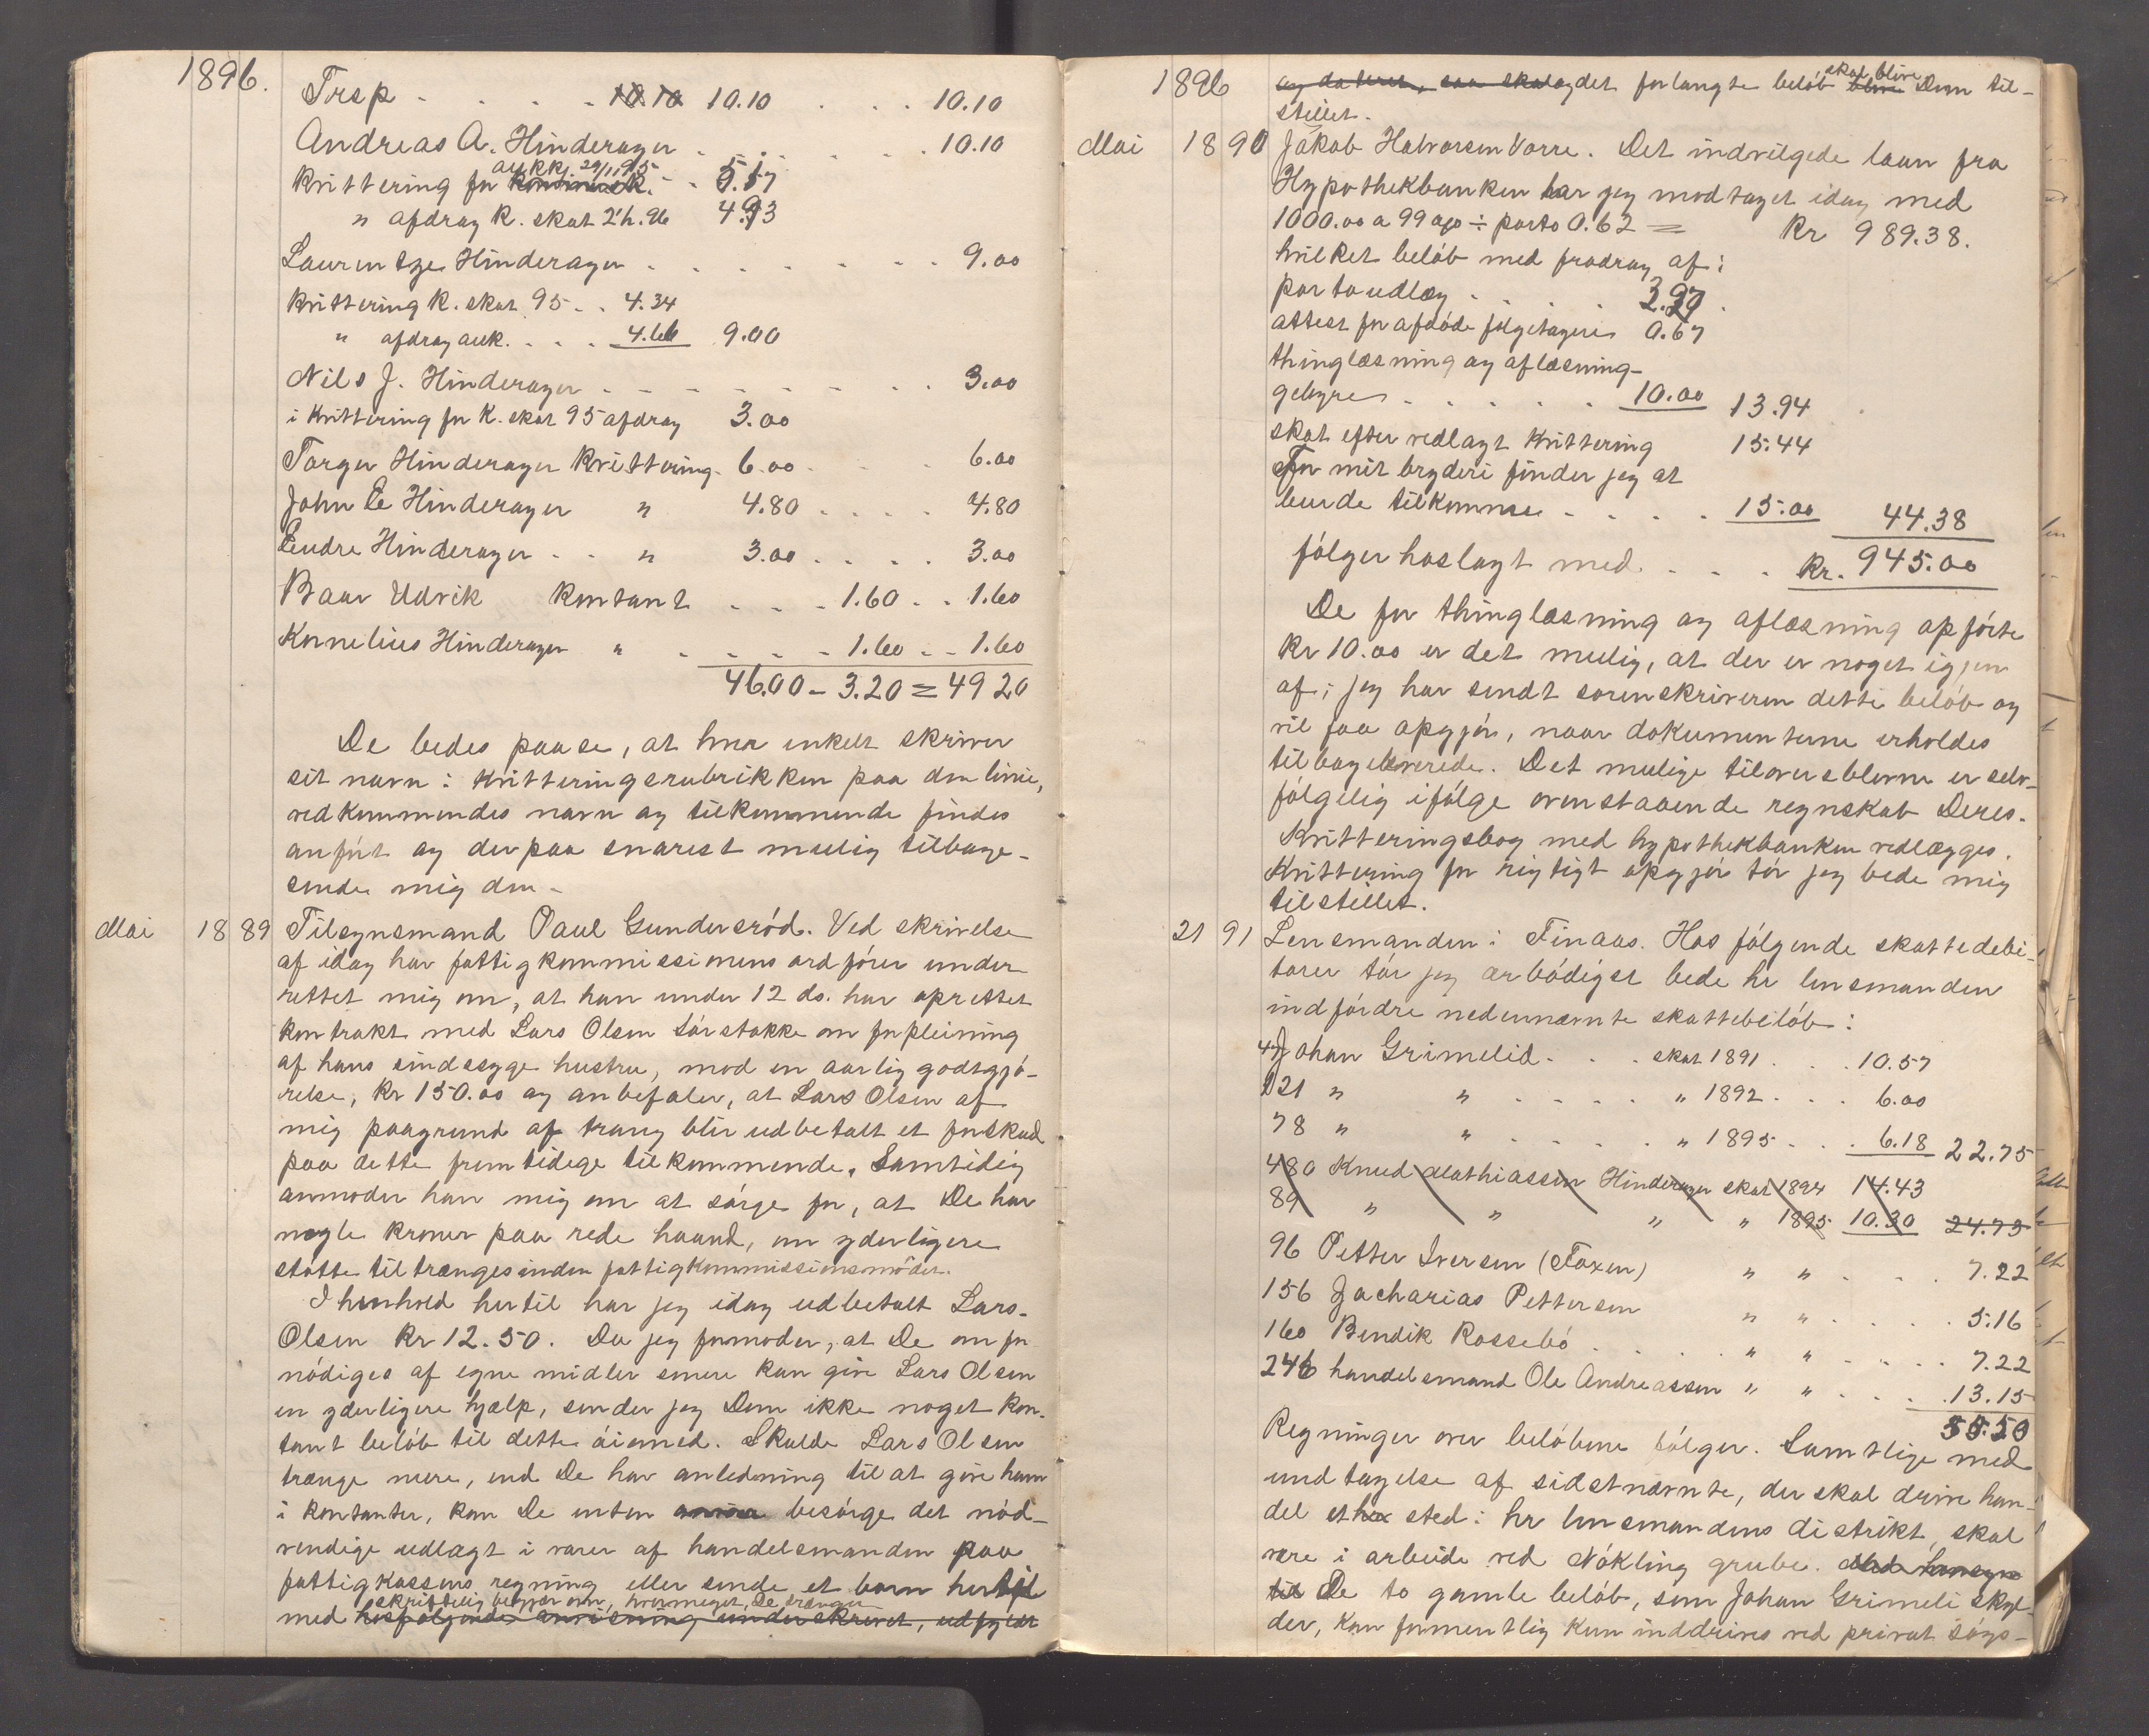 1896.
Trsp - . . . . 10.10 10.10 . . . 10.10
Andreas A. Hinderager . . . . . . 10.10
Kvittering for kommunesk. aukk. 29/11 95 - 5.17
" afdrag K. skat 2 h. 96 4.93
Laurentze Hinderager . . . . . . . 9.00
Kvittering K. skat 95 . . 4.34
" afdrag auk. . . . 4.66 9.00
Nils J. Hinderager . . . . . . . . 3.00
i Kvittering for K. skat 95 afdrag 3.00
Torger Hinderager Kvittering. 6.00 . . . 6.00
John E Hinderager " 4.80 . . . . 4.80
Endre Hinderager . . " 3.00 . . . . 3.00
Baar Udvik Kontant . . . 1.60 . . 1.60
Kornelius Hinderager " . . . . 1.60 . . 1.60
46.00 - 3.20 = 49 20
De bedes paase, at hver enkelt skriver
sit navn i Kvitteringsrubrikken paa den linie,
vedkommendes navn og tilkommende findes
anført og derpaa snarest mulig tilbage-
sende mig den -
Mai 18 89 Tilsynsmand Paul Gundersrød. Ved skrivelse
af idag har fattigkommissionens ordfører under-
rettet mig om, at han under 12 ds. har oprettet
kontrakt med Lars Olsen Sørstokke om forpleining
af hans sindssyge hustru, mod en aarlig godtgjø-
relse, kr 150.00 og anbefaler, at Lars Olsen af
mig paagrund af trang blir udbetalt et forskud
paa dette fremtidige tilkommende. Samtidig
anmoder han mig om at sørge for, at De har
nogle kroner paa rede haand, om yderligere
støtte tiltrænges inden fattigkommissionsmødet.
I henhold hertil har jeg idag udbetalt Lars
Olsen kr 12.50. Da jeg formoder, at De om for
nødiges af egne midler smere kan give Lars Olsen
en yderligere hjælp, sender jeg Dem ikke noget kon-
tant beløb til dette øiemed. Skulde Lars Olsen
trænge mere, end De har anledning til at give ham
i kontanter, kan De enten besørge det nød-
vendige udlagt i varer af handelsmanden paa
fattigkassens regning eller sende et barn hertil
skriftelig begjær om, hvormeget De trænger
med hosfølgende anvisning underskrevet, udfyldt
1896 og dateret, saa skal og det forlangte beløb skal blive blive Dem til-
stillet.
Mai 18 90 Jakob Halvorsen Vorre. Det indvilgede laan fra
Hypothekbanken har jeg modtaget idag med
1000.00 a 99 % ÷ porto 0.62 = Kr 989.38.
hvilket beløb med fradrag af:
portoudlæg . . . . . 3.27 .
attest for afdøde følgetagere 0.67
thinglæsning og aflæsning-
gebyr . . . . . 10.00 13.94
skat efter vedlagt Kvittering 15.44
For mit bryderi finder jeg at
burde tilkomme . . . . 15.00 44.38
følger hoslagt med . . . kr. 945.00
De for thinglæsning og aflæsning opførte
kr 10.00 er det mulig, at der er noget igjen
af; jeg har sendt sorenskriveren dette beløb og
vil faa opgjør, naar dokumenterne erholdes
tilbageleverede. Det mulige tiloversblevne er selv-
følgelig ifølge ovenstaaende regnskab Deres.
Kvitteringsbog med hypothekbanken vedlægges.
Kvittering for rigtigt opgjør tør jeg bede mig
tilstillet.
21 91 Lensmanden i Finaas. Hos følgende skattedebi-
torer tør jeg ærbødigst bede hr lensmanden
indfordre nedennævnte skattebeløb:
47 Johan Grimelid . . . skat 1891 . . . 10.57
121 " " . . . . " 1892 . . . 6.00
78 " " . . . . . " 1895 . . . 6.18 22.75
480 Knud Mathiassen Hinderager skat 1894 14.43
89 " " " " 1895 10.30 24.73
96 Petter Iversen (Foxen) " " . . . 7.22
156 Zacharias Pettersen " " . . . . 5.16
160 Bendik Rossebø . . . . " " . . . . 7.22
246 handelsmand Ole Andreassen " " . . . 13.15
55.50
Regninger over beløbene følger. Samtlige med
undtagelse af sidstnævnte, der skal drive han-
del et sted i hr lensmandens distrikt, skal
være i arbeide ved Nøkling grube. Med hensyn
til De to gamle beløb, som Johan Grimeli skyl-
der, kan formentlig kun inddrives ved privat søgs-